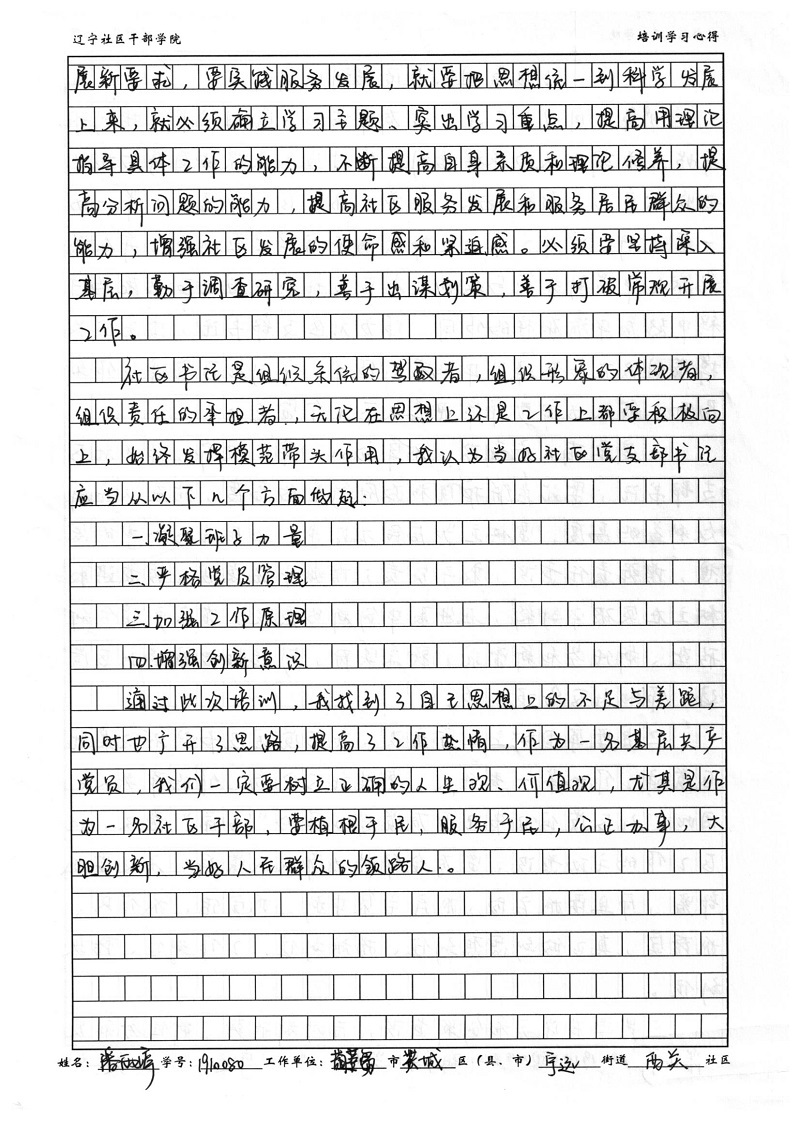 辽宁社区干部学院 培训学习心得
展新要求，要实践服务发展，就要把思想统一到科学发展
上来，就必须确立学习主题、突出学习重点，提高用理论
指导具体工作的能力，不断提高自身素质和理论修养，提
高分析问题的能力，提高社区服务发展和服务居民群众的
能力，增强社区发展的使命感和紧迫感。必须要坚持深入
基层，勤于调查研究，善于出谋划策，善于打破常规开展
工作。
社区书记是组织系统的驾驭者，组织形象的体现者，
组织责任的承担者，无论在思想上还是工作上都要积极向
上，始终发挥模范带头作用，我认为当好社区党支部书记
应当从以下几个方面做起：
一.凝聚班子力量
二.严格党员管理
三.加强工作原理
四.增强创新意识
通过此次培训，我找到了自己思想上的不足与差距，
同时也广开了思路，提高了工作热情，作为一名基层共产
党员，我们一定要树立正确的人生观、价值观，尤其是作
为一名社区干部，要植根于民，服务于民，公正办事，大
胆创新，当好人民群众的领路人。
姓名： 学号：1910080 工作单位： 市 兴城 区（县、市） 宁远 街道 西关 社区